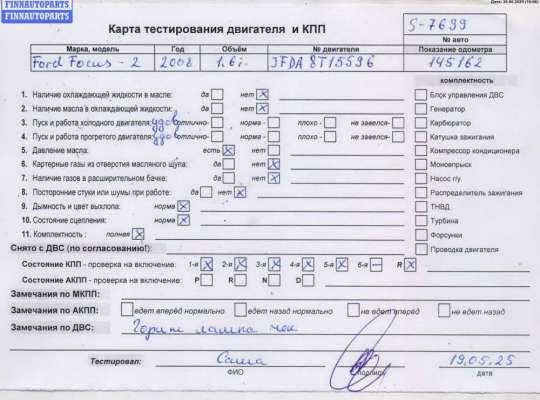 FINNAUTOPARTS
FINNAUTOPARTS
Дата: 20.06.2025
Карта тестирования двигателя и КПП
S-7699
№ авто
Марка, модель Год Объём № двигателя Показание одометра
Ford Focus - 2 2008 1,6i 3FDA 8T15596 145162
комплектность
1. Наличие охлаждающей жидкости в масле: да нет X Блок управления ДВС
2. Наличие масла в охлаждающей жидкости: да нет X Генератор
3. Пуск и работа холодного двигателя: удов отлично- норма - плохо - не завелся- Карбюратор
4. Пуск и работа прогретого двигателя: удов отлично- норма - плохо - не завелся- Катушка зажигания
5. Давление масла: есть X нет X Компрессор кондиционера
6. Картерные газы из отверстия масляного щупа: да нет X Моновпрыск
7. Наличие газов в расширительном бачке: да нет X Насос г/у
8. Посторонние стуки или шумы при работе: да нет X Распределитель зажигания
9. Дымность и цвет выхлопа: норма X ТНВД
10. Состояние сцепления: норма X Турбина
11. Комплектность: полная X Форсунки
Снято с ДВС (по согласованию!): Проводка двигателя
Состояние КПП - проверка на включение: 1-я X 2-я X 3-я X 4-я X 5-я X 6-я — R X
Состояние АКПП - проверка на включение: P R N D
Замечания по МКПП:
Замечания по АКПП: едет вперёд нормально едет назад нормально не едет вперёд не едет назад
Замечания по ДВС: Горит лампа чек
Тестировал: Саша 19.05.25
ФИО подпись дата